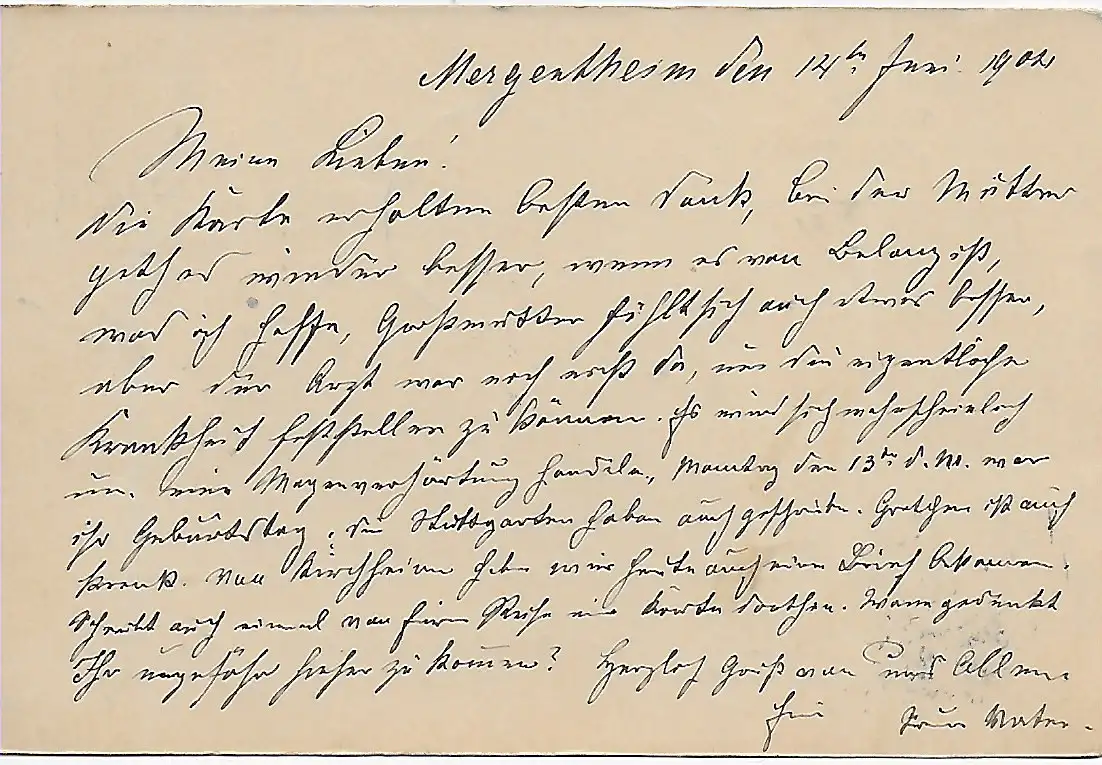 Mergentheim den 14ten Juni. 1902
Meine Lieben!
Die Karte erhalten besten Dank, bei der Mutter
geth es wieder besser, wenn es von Belang ist,
was ich hoffe, Großmutter fühlt sich auch etwas besser,
aber der Arzt war noch nicht da, um die eigentliche
Krankheit feststellen zu können. Es wird sich wahrscheinlich
um eine Magenverhärtung handeln, Montag den 13ten d. M. war
ihr Geburtstag, die Stuttgarter haben auch geschrieben. Gretchen ist auch
krank. Von Kirchheim haben wir heute auch einen Brief bekommen.
Schreibt auch einmal von Reise eine Karte dorthin. Wann gedenkt
Ihr ungefähr hieher zu kommen? Herzlich Gruß von uns Allen.
Euer Vater.